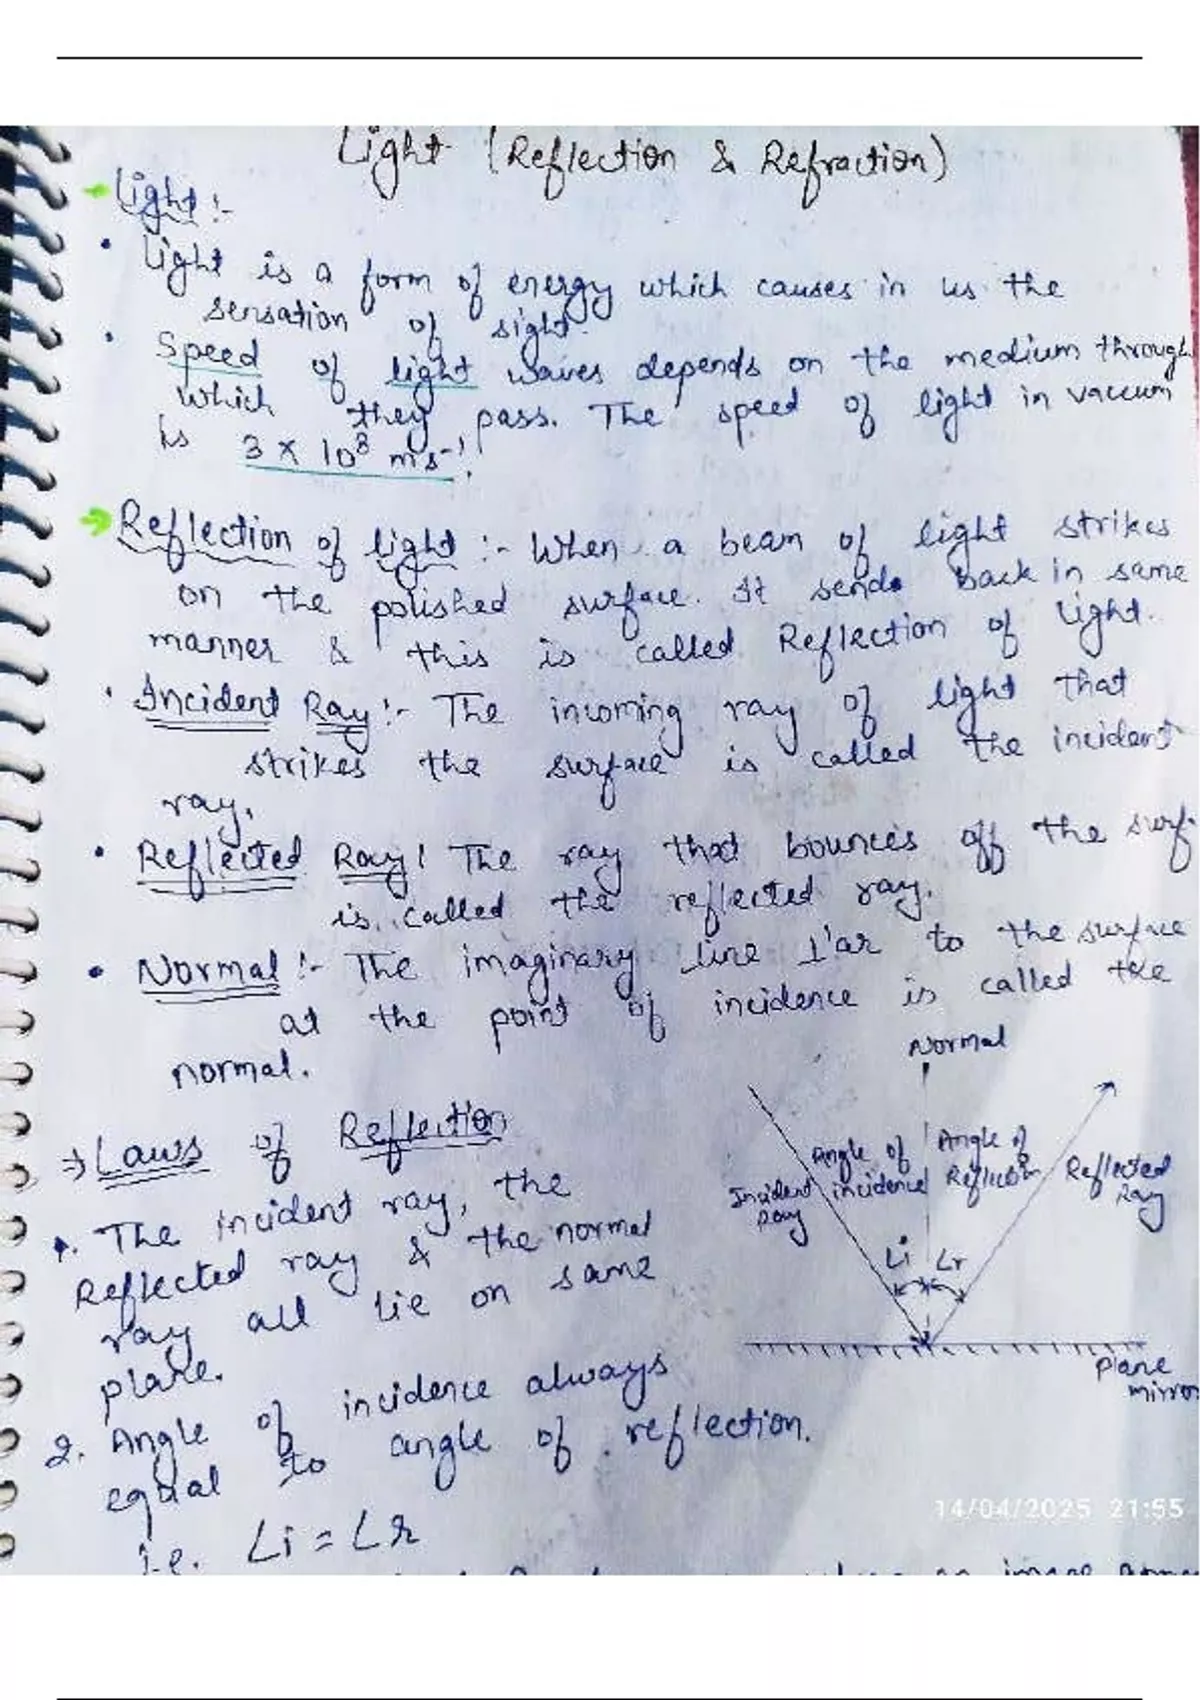 Light (Reflection & Refraction)
Light :-
• Light is a form of energy which causes in us the
sensation of sight.
• Speed of light waves depends on the medium through
which they pass. The speed of light in vaccum
is 3 × 10⁸ ms⁻¹.
→ Reflection of light :- When a beam of light strikes
on the polished surface. It sends back in same
manner & this is called Reflection of light.
• Incident Ray :- The incoming ray of light that
strikes the surface is called the incident
ray.
• Reflected Ray! The ray that bounces off the surf.
is called the reflected ray.
• Normal :- The imaginary line ⊥'ar to the surface
at the point of incidence is called the
normal.
Normal
Angle of incidence
Angle of Reflection
Incident Ray
Reflected Ray
∠i ∠r
Plane mirror
→ Laws of Reflection
1. The incident ray, the
Reflected ray & the normal
ray all lie on same
plane.
2. Angle of incidence always
equal to angle of reflection.
i.e. ∠i = ∠r
14/04/2025 21:55